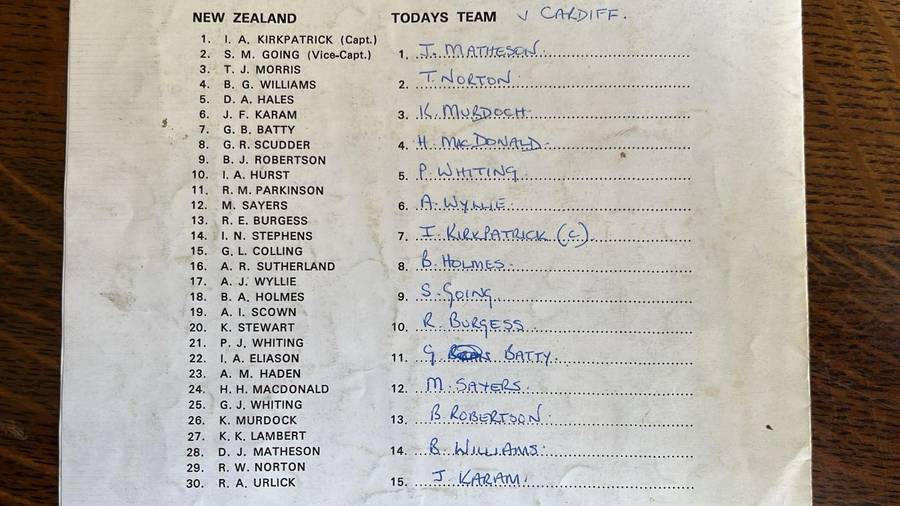 NEW ZEALAND
1. I. A. KIRKPATRICK (Capt.)
2. S. M. GOING (Vice-Capt.)
3. T. J. MORRIS
4. B. G. WILLIAMS
5. D. A. HALES
6. J. F. KARAM
7. G. B. BATTY
8. G. R. SCUDDER
9. B. J. ROBERTSON
10. I. A. HURST
11. R. M. PARKINSON
12. M. SAYERS
13. R. E. BURGESS
14. I. N. STEPHENS
15. G. L. COLLING
16. A. R. SUTHERLAND
17. A. J. WYLLIE
18. B. A. HOLMES
19. A. I. SCOWN
20. K. STEWART
21. P. J. WHITING
22. I. A. ELIASON
23. A. M. HADEN
24. H. H. MACDONALD
25. G. J. WHITING
26. K. MURDOCK
27. K. K. LAMBERT
28. D. J. MATHESON
29. R. W. NORTON
30. R. A. URLICK
TODAYS TEAM V CARDIFF.
1. J. MATHESON.
2. T. NORTON
3. K. MURDOCH.
4. H. MACDONALD.
5. P. WHITING
6. A. WYLLIE.
7. I. KIRKPATRICK (C)
8. B. HOLMES.
9. S. GOING
10. R. BURGESS
11. G BATTY
12. M. SAYERS.
13. B. ROBERTSON
14. B. WILLIAMS.
15. J. KARAM.